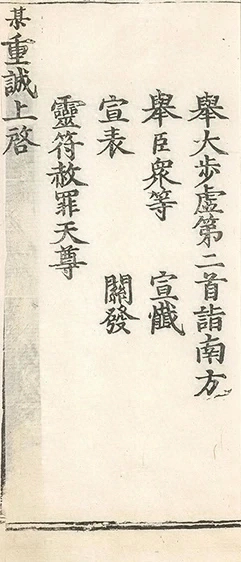 舉大步虛第二首詣南方
舉臣衆等　宣懺
宣表　關發
靈符赦罪天尊
某重誠上啓